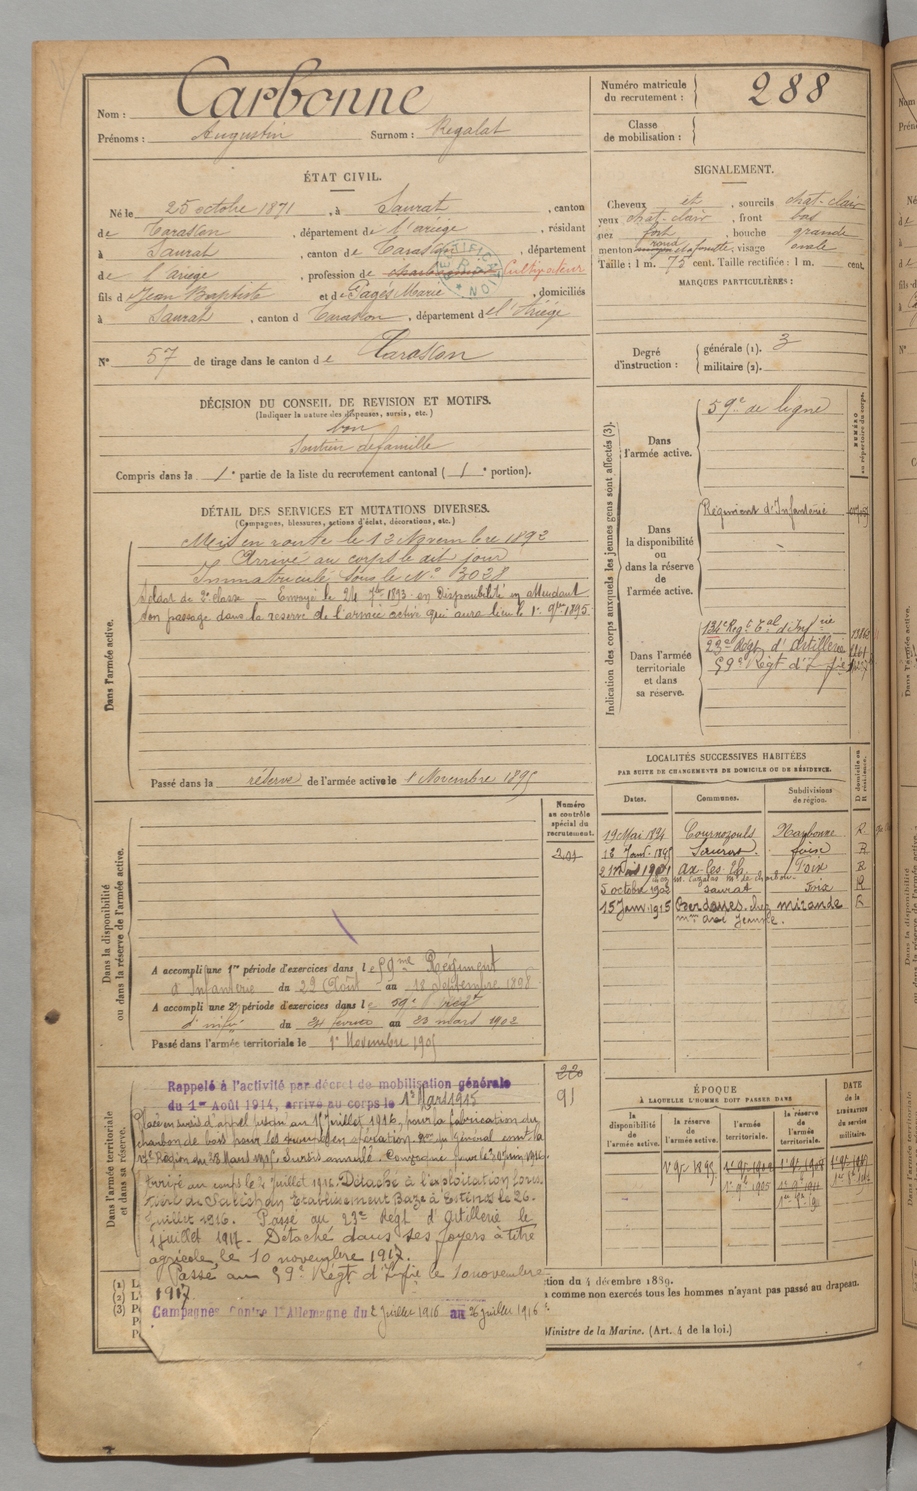 Nom : Carbonne
Prénoms : Augustin Surnom : Regalat
Numéro matricule du recrutement : 288
Classe de mobilisation :
ÉTAT CIVIL.
Né le 25 octobre 1871, à Saurat, canton
de Tarascon, département de l'ariège, résidant
à Saurat, canton de Tarascon, département
de l'ariège, profession de Cultivateur
fils de Jean Baptiste et de Pagès Marie, domiciliés
à Saurat, canton d Tarascon, département de l'Ariège
N° 57 de tirage dans le canton de Tarascon
SIGNALEMENT.
Cheveux et, sourcils chat-clair
yeux chat-clair, front bas
nez fort, bouche grande
menton rond à fossette, visage ovale
Taille : 1 m. 75 cent. Taille rectifiée : 1 m. cent.
MARQUES PARTICULIÈRES :
Degré d'instruction : générale (1). 3
militaire (2).
DÉCISION DU CONSEIL DE REVISION ET MOTIFS.
(Indiquer la nature des dispenses, sursis, etc.)
bon
Soutien de famille
Compris dans la 1e partie de la liste du recrutement cantonal (1e portion).
DÉTAIL DES SERVICES ET MUTATIONS DIVERSES.
(Campagnes, blessures, actions d'éclat, décorations, etc.)
Dans l'armée active.
Mis en route le 12 Novembre 1892
Arrivé au corps le dit jour
Immatriculé sous le N° 3028
Soldat de 2e classe — Envoyé le 24 7bre 1893 en Disponibilité en attendant
son passage dans la réserve de l'armée active qui aura lieu le 1er 9bre 1895
Passé dans la réserve de l'armée active le 1 Novembre 1895
Indication des corps auxquels les jeunes gens sont affectés (3).
NUMÉRO au répertoire du corps.
Dans l'armée active.
59e de ligne
Dans la disponibilité ou dans la réserve de l'armée active.
Régiment d'Infanterie
Dans l'armée territoriale et dans sa réserve.
134e Regt Tal d'Infie
23e Régt d'Artillerie
59e Régt d'Infie
LOCALITÉS SUCCESSIVES HABITÉES
PAR SUITE DE CHANGEMENTS DE DOMICILE OU DE RÉSIDENCE.
Dates. Communes. Subdivisions de région. D domicile ou R résidence.
19 Mai 1894 Cournozouls Narbonne R
Saurat. Foix R
1901 Ax-les-Th. Foix R
5 octobre 1902 Saurat Foix R
15 Janv. 1915 chez mirande R
Jeanne.
Dans la disponibilité ou dans la réserve de l'armée active.
Numéro au contrôle spécial du recrutement.
201
A accompli une 1re période d'exercices dans le 59me Régiment
d'Infanterie du 22 Août au 18 Septembre 1898
A accompli une 2e période d'exercices dans le 59e Régt
d'infie du 24 février au 23 mars 1902
Passé dans l'armée territoriale le 1er Novembre 1905
Dans l'armée territoriale et dans sa réserve.
220
91
Rappelé à l'activité par décret de mobilisation générale
du 1er Août 1914, arrivé au corps le 1er Mars 1915
Placé en sursis d'appel jusqu'au 1er Juillet 1916, pour la fabrication du
charbon de bois
17e Région du 28 Mars Sursis annulé.
Arrivé au corps le 2 Juillet 1916. Détaché à l'exploitation fores
Juillet 1916. Passé au 23e Régt d'Artillerie le
1 juillet 1917. Détaché dans ses foyers à titre
agricole, le 10 novembre 1917.
Passé au 59e Régt d'Infie le 10 novembre
1917
Campagnes Contre l'Allemagne du 2 juillet 1916 au 26 juillet 1916
ÉPOQUE
À LAQUELLE L'HOMME DOIT PASSER DANS
la disponibilité de l'armée active. la réserve de l'armée active. l'armée territoriale. la réserve de l'armée territoriale.
DATE de la LIBÉRATION du service militaire.
1er 9bre 1895
1er 9bre 1905
(1)
(2)
(3)
tion du 4 décembre 1889.
comme non exercés tous les hommes n'ayant pas passé au drapeau.
Ministre de la Marine. (Art. 4 de la loi.)